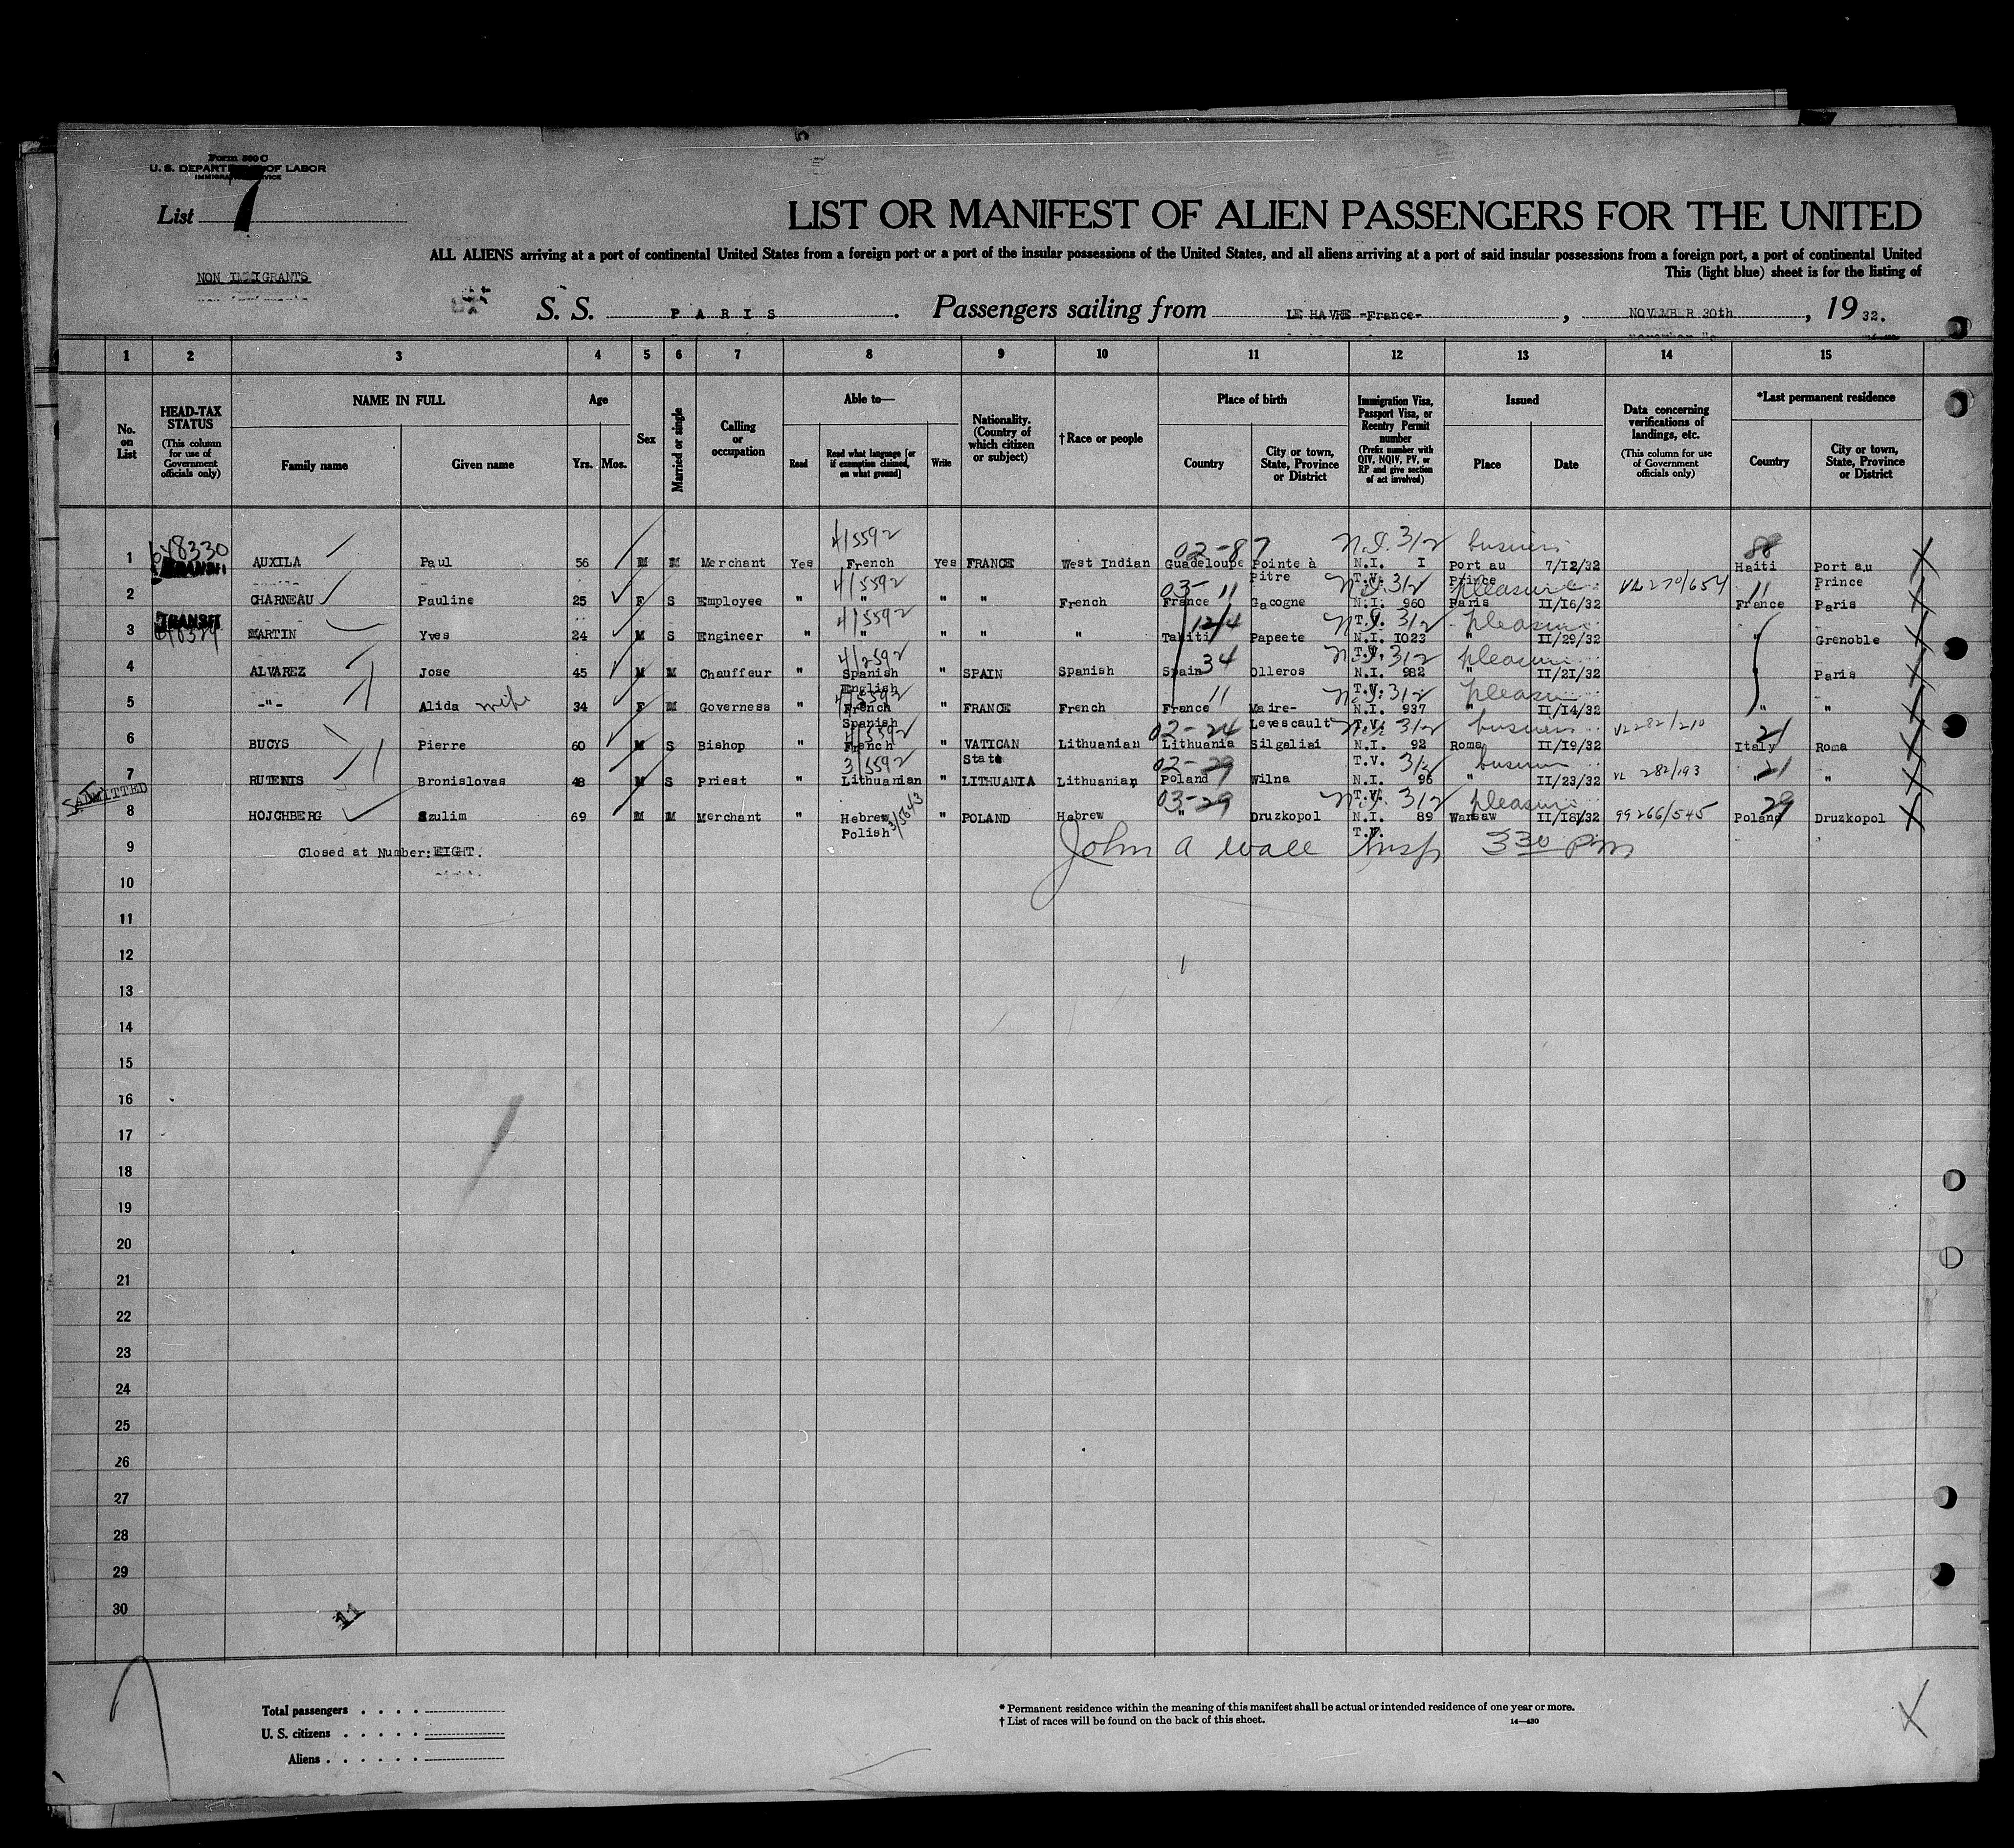 Form 500 C
U. S. DEPARTMENT OF LABOR
IMMIGRATION SERVICE
List 7
LIST OR MANIFEST OF ALIEN PASSENGERS FOR THE UNITED
ALL ALIENS arriving at a port of continental United States from a foreign port or a port of the insular possessions of the United States, and all aliens arriving at a port of said insular possessions from a foreign port, a port of continental United
This (light blue) sheet is for the listing of
NON IMMIGRANTS
S. S. PARIS. Passengers sailing from LE HAVRE -France-, NOVEMBER 30th, 1932.
1 2 3 4 5 6 7 8 9 10 11 12 13 14 15
No. on List
HEAD-TAX STATUS (This column for use of Government officials only)
NAME IN FULL Family name Given name
Age Yrs. Mos.
Sex
Married or single
Calling or occupation
Able to— Read Read what language [or if exemption claimed, on what ground] Write
Nationality. (Country of which citizen or subject)
† Race or people
Place of birth Country City or town, State, Province or District
Immigration Visa, Passport Visa, or Reentry Permit number (Prefix number with QIV, NQIV, PV, or RP and give section of act involved)
Issued Place Date
Data concerning verifications of landings, etc. (This column for use of Government officials only)
*Last permanent residence Country City or town, State, Province or District
648330 4/5592 02-87 N.I. 3/2 business 88
1 TRANSIT AUXILA Paul 56 M M Merchant Yes French Yes FRANCE West Indian Guadeloupe Pointe à Pitre N.I. I T.V. Port au Prince 7/12/32 Haiti Port au Prince
4/5592 03- 11 3/2 pleasure VL270/654 11
2 CHARNEAU Pauline 25 F S Employee " " " " French France Gacogne N.I. 960 T.V. Paris II/I6/32 France Paris
TRANSIT 4/5592 3/2 pleasure
3 MARTIN Yves 24 M S Engineer " " " " " Tahiti Papeete N.I. I023 T.V. " II/29/32 " Grenoble
4/2592 34 3/2 pleasure
4 ALVAREZ Jose 45 M M Chauffeur " Spanish English " SPAIN Spanish Spain Olleros N.I. 982 T.V. " II/21/32 Paris
4/5592 11 3/2 pleasure
5 -"- Alida wife 34 F M Governess " French Spanish " FRANCE French France Maire-Levescault N.I. 937 T.V. " II/14/32 " "
4/5592 02-24 3/2 business VL282/210 21
6 BUCYS Pierre 60 M S Bishop " French " VATICAN State Lithuanian Lithuania Silgaliai N.I. 92 T.V. Roma II/I9/32 Italy Roma
3/5592 02-29 3/2 business VL 282/193 21
7 RUTENIS Bronislovas 48 M S Priest " Lithuanian " LITHUANIA Lithuanian Poland Wilna N.I. 96 T.V. " II/23/32 "
ADMITTED 3/5643 03-29 3/2 pleasure 99266/545 29
8 HOJCHBERG Szulim 69 M M Merchant " Hebrew Polish " POLAND Hebrew " Druzkopol N.I. 89 T.V. Warsaw II/I8/32 Poland Druzkopol
9 Closed at Number: EIGHT. John A Wall Insp 3 30 pm
10
11
12
13
14
15
16
17
18
19
20
21
22
23
24
25
26
27
28
29
30
11
Total passengers
U. S. citizens
Aliens
* Permanent residence within the meaning of this manifest shall be actual or intended residence of one year or more.
† List of races will be found on the back of this sheet. 14—430